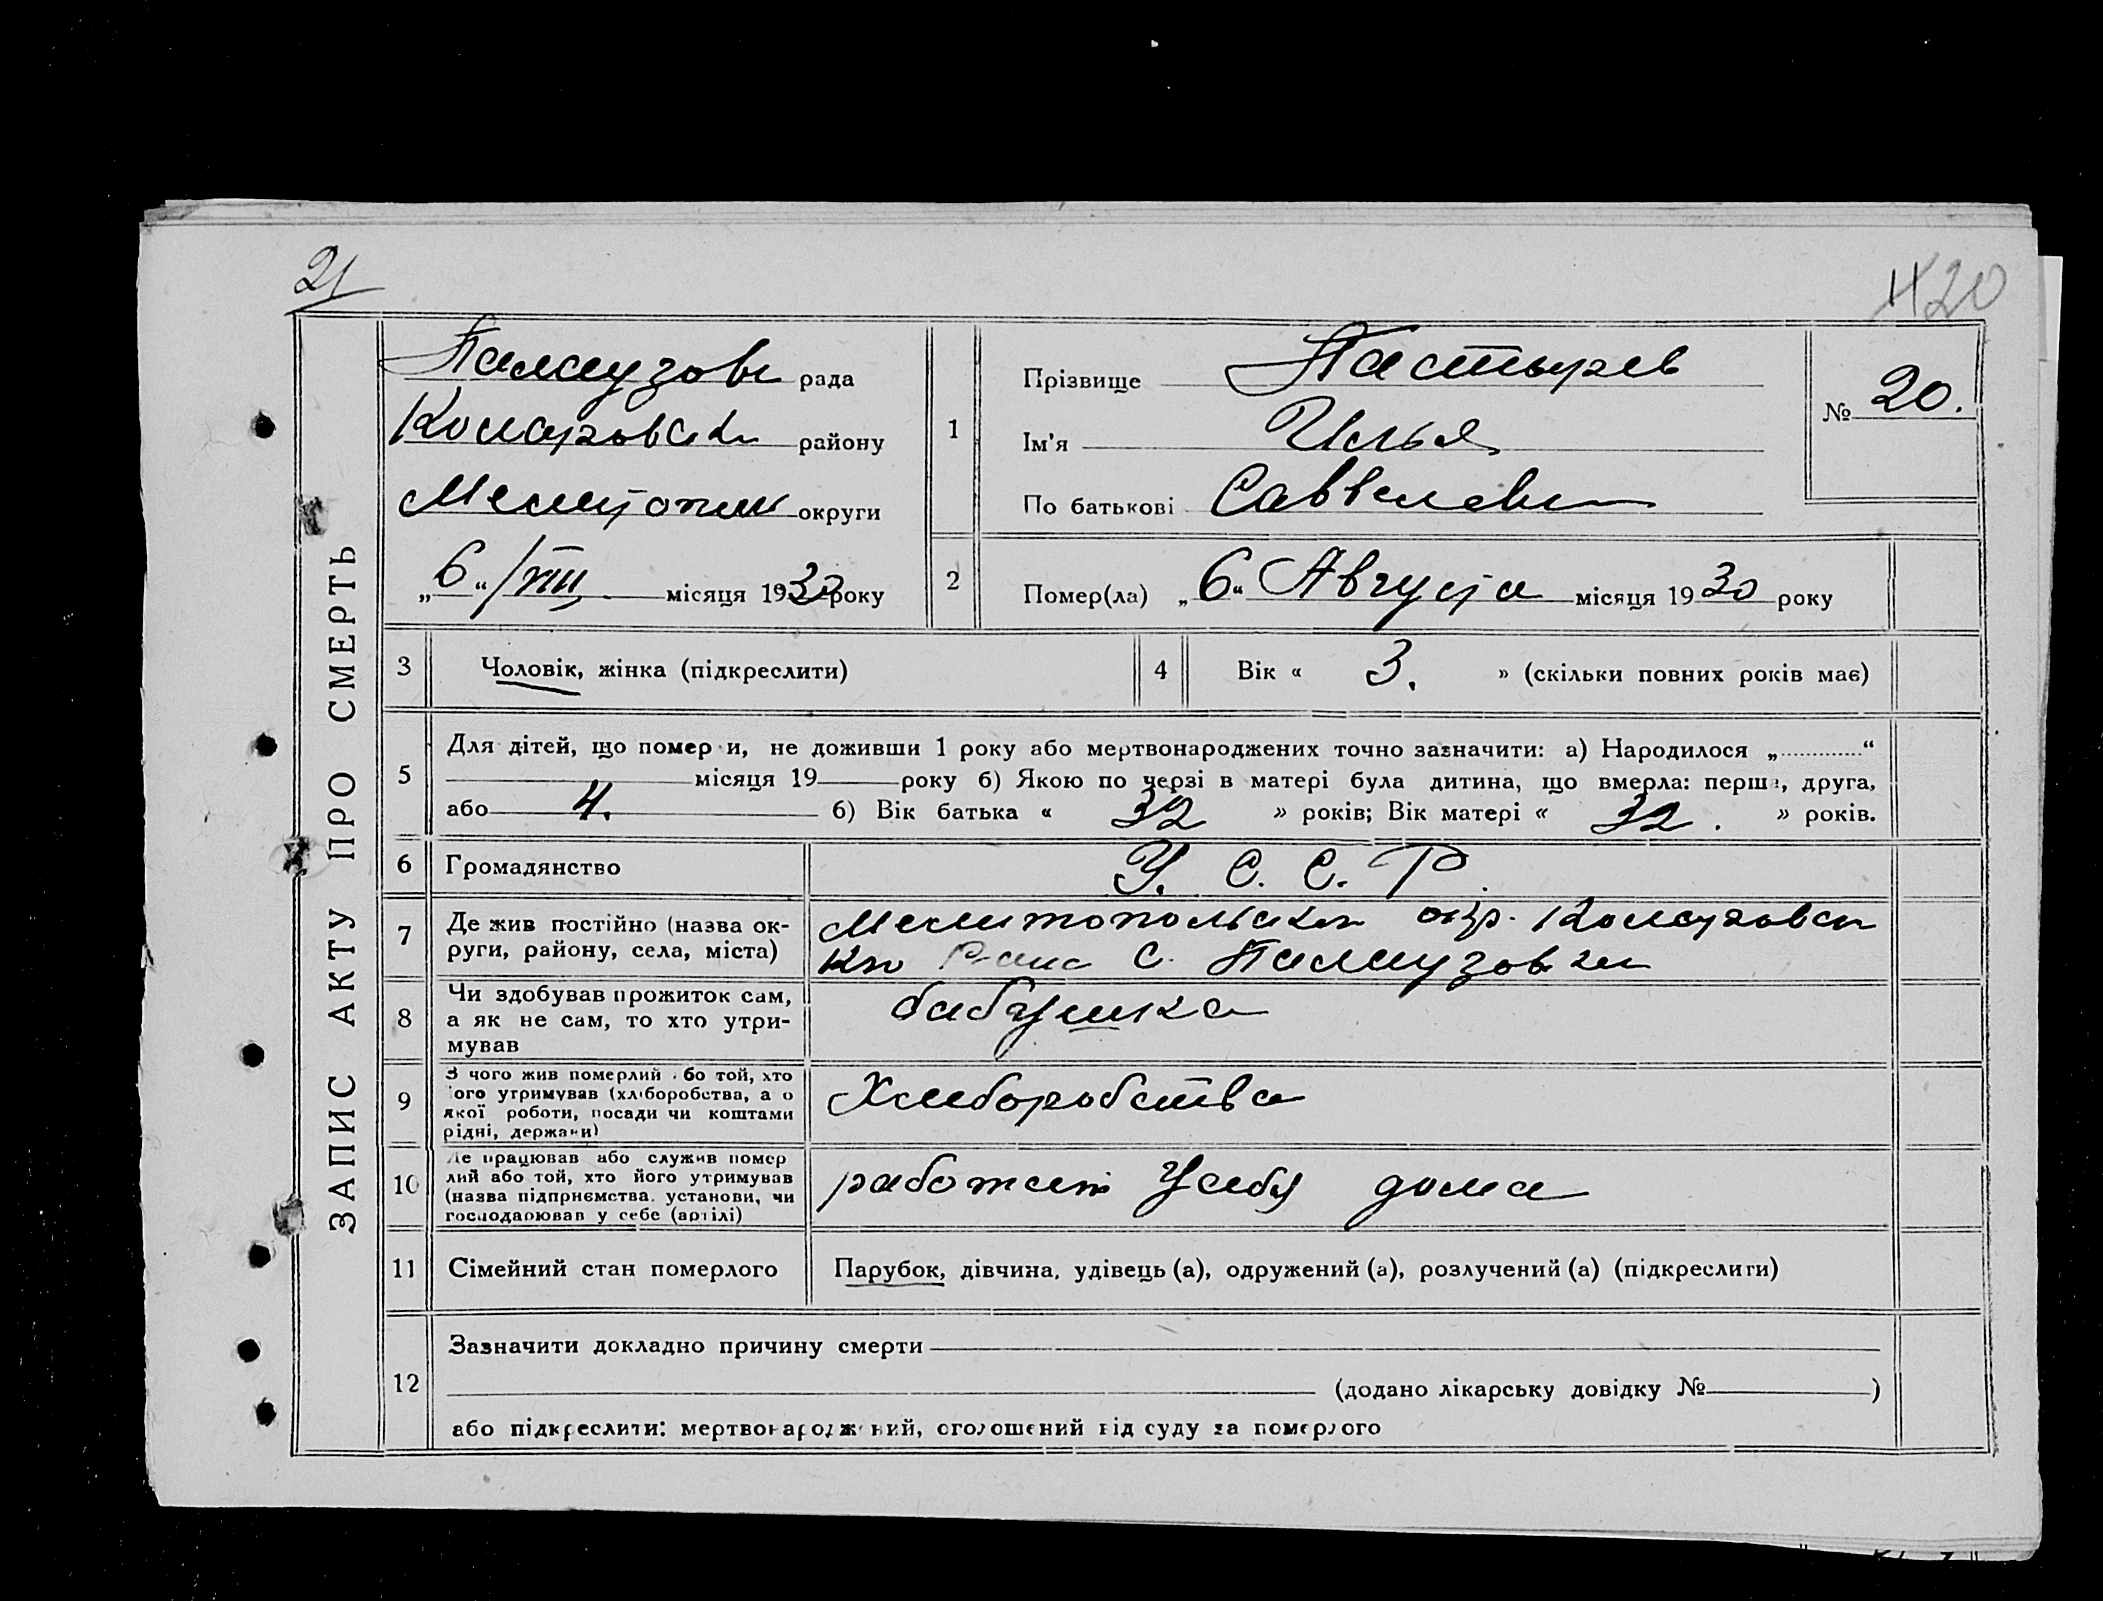 21
20
ЗАПИС АКТУ ПРО СМЕРТЬ
Палаузовс рада
Коларовск району
Мелитопол округи
„6“ /VIII місяця 1930 року
1
Прізвище Пастырев
Ім'я Илья
По батькові
№ 20.
2
Помер(ла) „6“ Августа місяця 1930 року
3 Чоловік, жінка (підкреслити)
4 Вік « 3. » (скільки повних років має)
5
Для дітей, що помер и, не доживши 1 року або мертвонароджених точно зазначити: а) Народилося „ “
місяця 19 року б) Якою по черзі в матері була дитина, що вмерла: перша, друга,
або 4. б) Вік батька « 32 » років; Вік матері « 32. » років.
6 Громадянство
У. С. С. Р.
7
Де жив постійно (назва ок-
руги, району, села, міста)
Мелитопольской окр. Коларовск
с. Палаузовка
8
Чи здобував прожиток сам,
а як не сам, то хто утри-
мував
бабушка
9
З чого жив померлий або той, хто
його утримував (хліборобства, а о
якої роботи, посади чи коштами
рідні, держави)
Хлиборобства
10
Де працював або служив помер
лий або той, хто його утримував
(назва підприємства, установи, чи
господарював у себе (артілі)
работает у себя дома
11 Сімейний стан померлого
Парубок, дівчина, удівець (а), одружений (а), розлучений (а) (підкреслити)
12
Зазначити докладно причину смерти
(додано лікарську довідку № )
або підкреслити: мертвонароджений, оголошений від суду за померлого